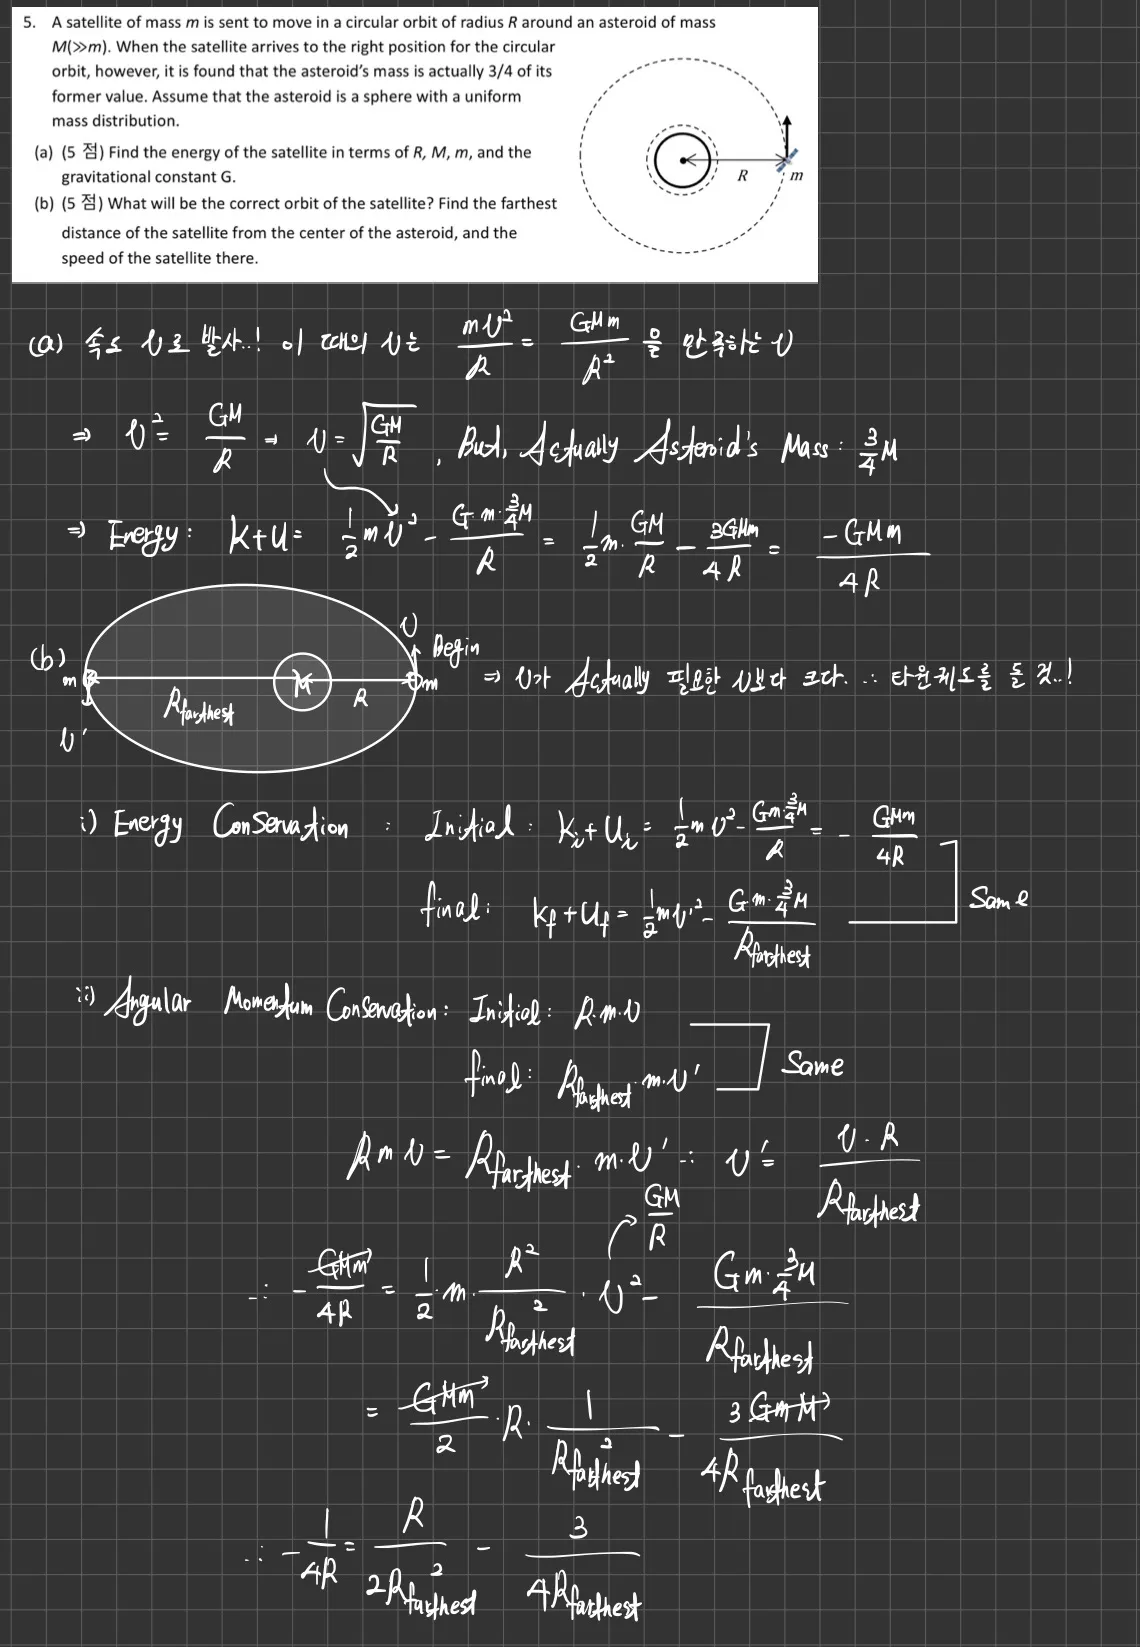 5. A satellite of mass m is sent to move in a circular orbit of radius R around an asteroid of mass
M(≫m). When the satellite arrives to the right position for the circular
orbit, however, it is found that the asteroid's mass is actually 3/4 of its
former value. Assume that the asteroid is a sphere with a uniform
mass distribution.
(a) (5 점) Find the energy of the satellite in terms of R, M, m, and the
gravitational constant G.
(b) (5 점) What will be the correct orbit of the satellite? Find the farthest
distance of the satellite from the center of the asteroid, and the
speed of the satellite there.
R m
(a) 속도 v로 발사..! 이 때의 v는 mv²/R = GMm/R² 을 만족하는 v
⇒ v² = GM/R → v = √(GM/R) , But, Actually Asteroid's Mass : 3/4 M
⇒ Energy : k+U = 1/2 m v² - G·m·3/4M / R = 1/2 m · GM/R - 3GMm/4R = -GMm/4R
(b) m v' R_farthest M R v m Begin ⇒ v가 Actually 필요한 v보다 크다. ∴ 타원궤도를 돌 것..!
i) Energy Conservation : Initial : K_i + U_i = 1/2 m v² - Gm·3/4M / R = - GMm/4R
final : k_f + U_f = 1/2 m v'² - G·m·3/4M / R_farthest
Same
ii) Angular Momentum Conservation : Initial : R·m·v
final : R_farthest · m·v'
Same
R m v = R_farthest · m·v' ∴ v' = v·R / R_farthest
GM/R
∴ - GMm/4R = 1/2 · m · R²/R_farthest² · v² - Gm·3/4M / R_farthest
= GMm/2 · R · 1/R_farthest² - 3GmM/4R_farthest
∴ - 1/4R = R/2R_farthest² - 3/4R_farthest